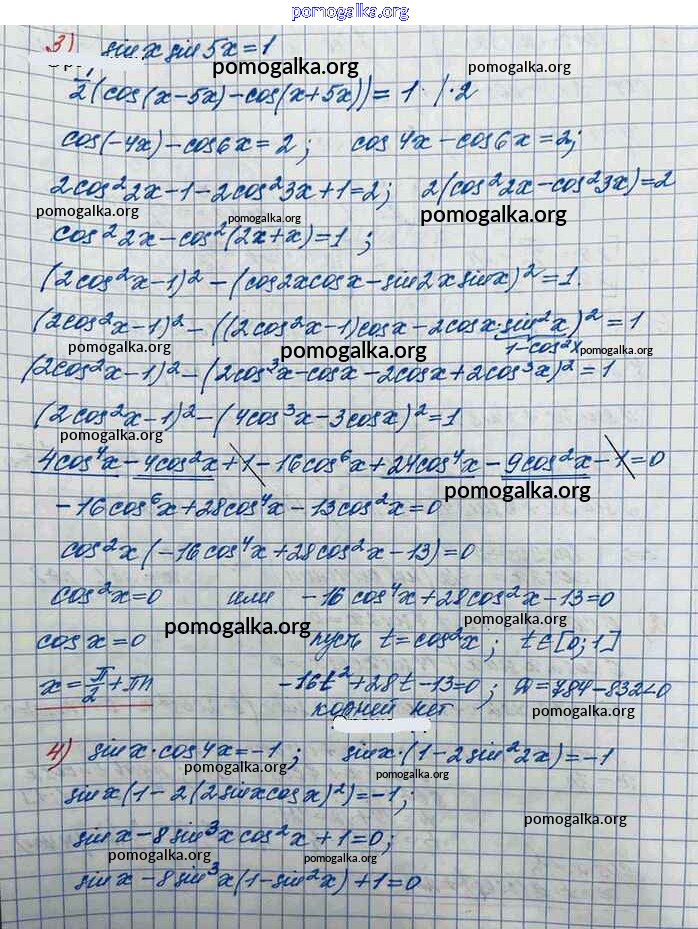 pomogalka.org
3) sin x sin 5x = 1
pomogalka.org pomogalka.org
1/2 (cos(x-5x) - cos(x+5x)) = 1 · | · 2
cos(-4x) - cos 6x = 2; cos 4x - cos 6x = 2;
2cos²2x - 1 - 2cos²3x + 1 = 2; 2(cos²2x - cos²3x) = 2
pomogalka.org pomogalka.org pomogalka.org
cos²2x - cos²(2x+x) = 1;
(2cos²x - 1)² - (cos2x cosx - sin2x sinx)² = 1.
(2cos²x - 1)² - ((2cos²x - 1)cosx - 2cosx · sin²x)² = 1
1 - cos²x
pomogalka.org pomogalka.org pomogalka.org
(2cos²x - 1)² - (2cos³x - cosx - 2cosx + 2cos³x)² = 1
(2cos²x - 1)² - (4cos³x - 3cosx)² = 1
pomogalka.org
4cos⁴x - 4cos²x + 1 - 16cos⁶x + 24cos⁴x - 9cos²x - 1 = 0
pomogalka.org
-16cos⁶x + 28cos⁴x - 13cos²x = 0
cos²x(-16cos⁴x + 28cos²x - 13) = 0
cos²x = 0 или -16cos⁴x + 28cos²x - 13 = 0
pomogalka.org pomogalka.org
cos x = 0 пусть t = cos²x; t ∈ [0; 1]
x = π/2 + πn -16t² + 28t - 13 = 0; D = 784 - 832 < 0
корней нет
pomogalka.org
4) sin x · cos 4x = -1; sin x · (1 - 2sin²2x) = -1
pomogalka.org pomogalka.org
sin x (1 - 2(2sinx cosx)²) = -1;
sin x - 8sin³x cos²x + 1 = 0;
pomogalka.org
pomogalka.org pomogalka.org
sin x - 8sin³x(1 - sin²x) + 1 = 0